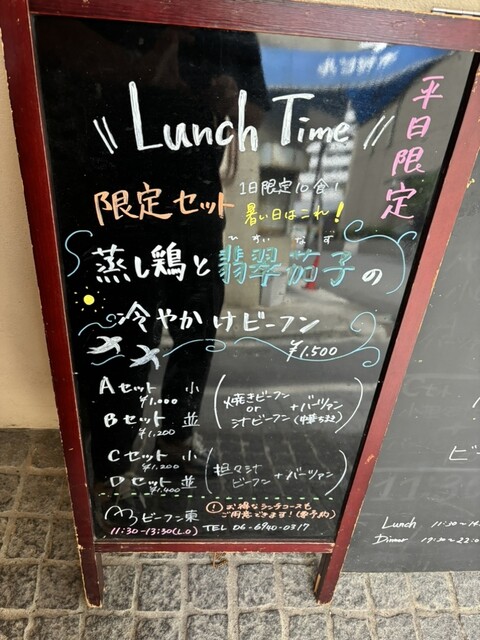 Lunch Time
平日限定
限定セット 1日限定10食!
暑い日はこれ!
ひすいなす
蒸し鶏と翡翠茄子の
冷やかけビーフン
¥1.500
Aセット 小
¥1.000
Bセット 並
¥1.200
(焼きビーフン or 汁ビーフン +バーツァン(中華ちまき))
Cセット 小
¥1.200
Dセット 並
¥1.400
(担々汁ビーフン +バーツァン)
ビーフン東
! お得なランチコースも
ご用意できます!(要予約)
11:30-13:30(L.O) TEL 06-6940-0317
Lunch 11:30~
Dinner